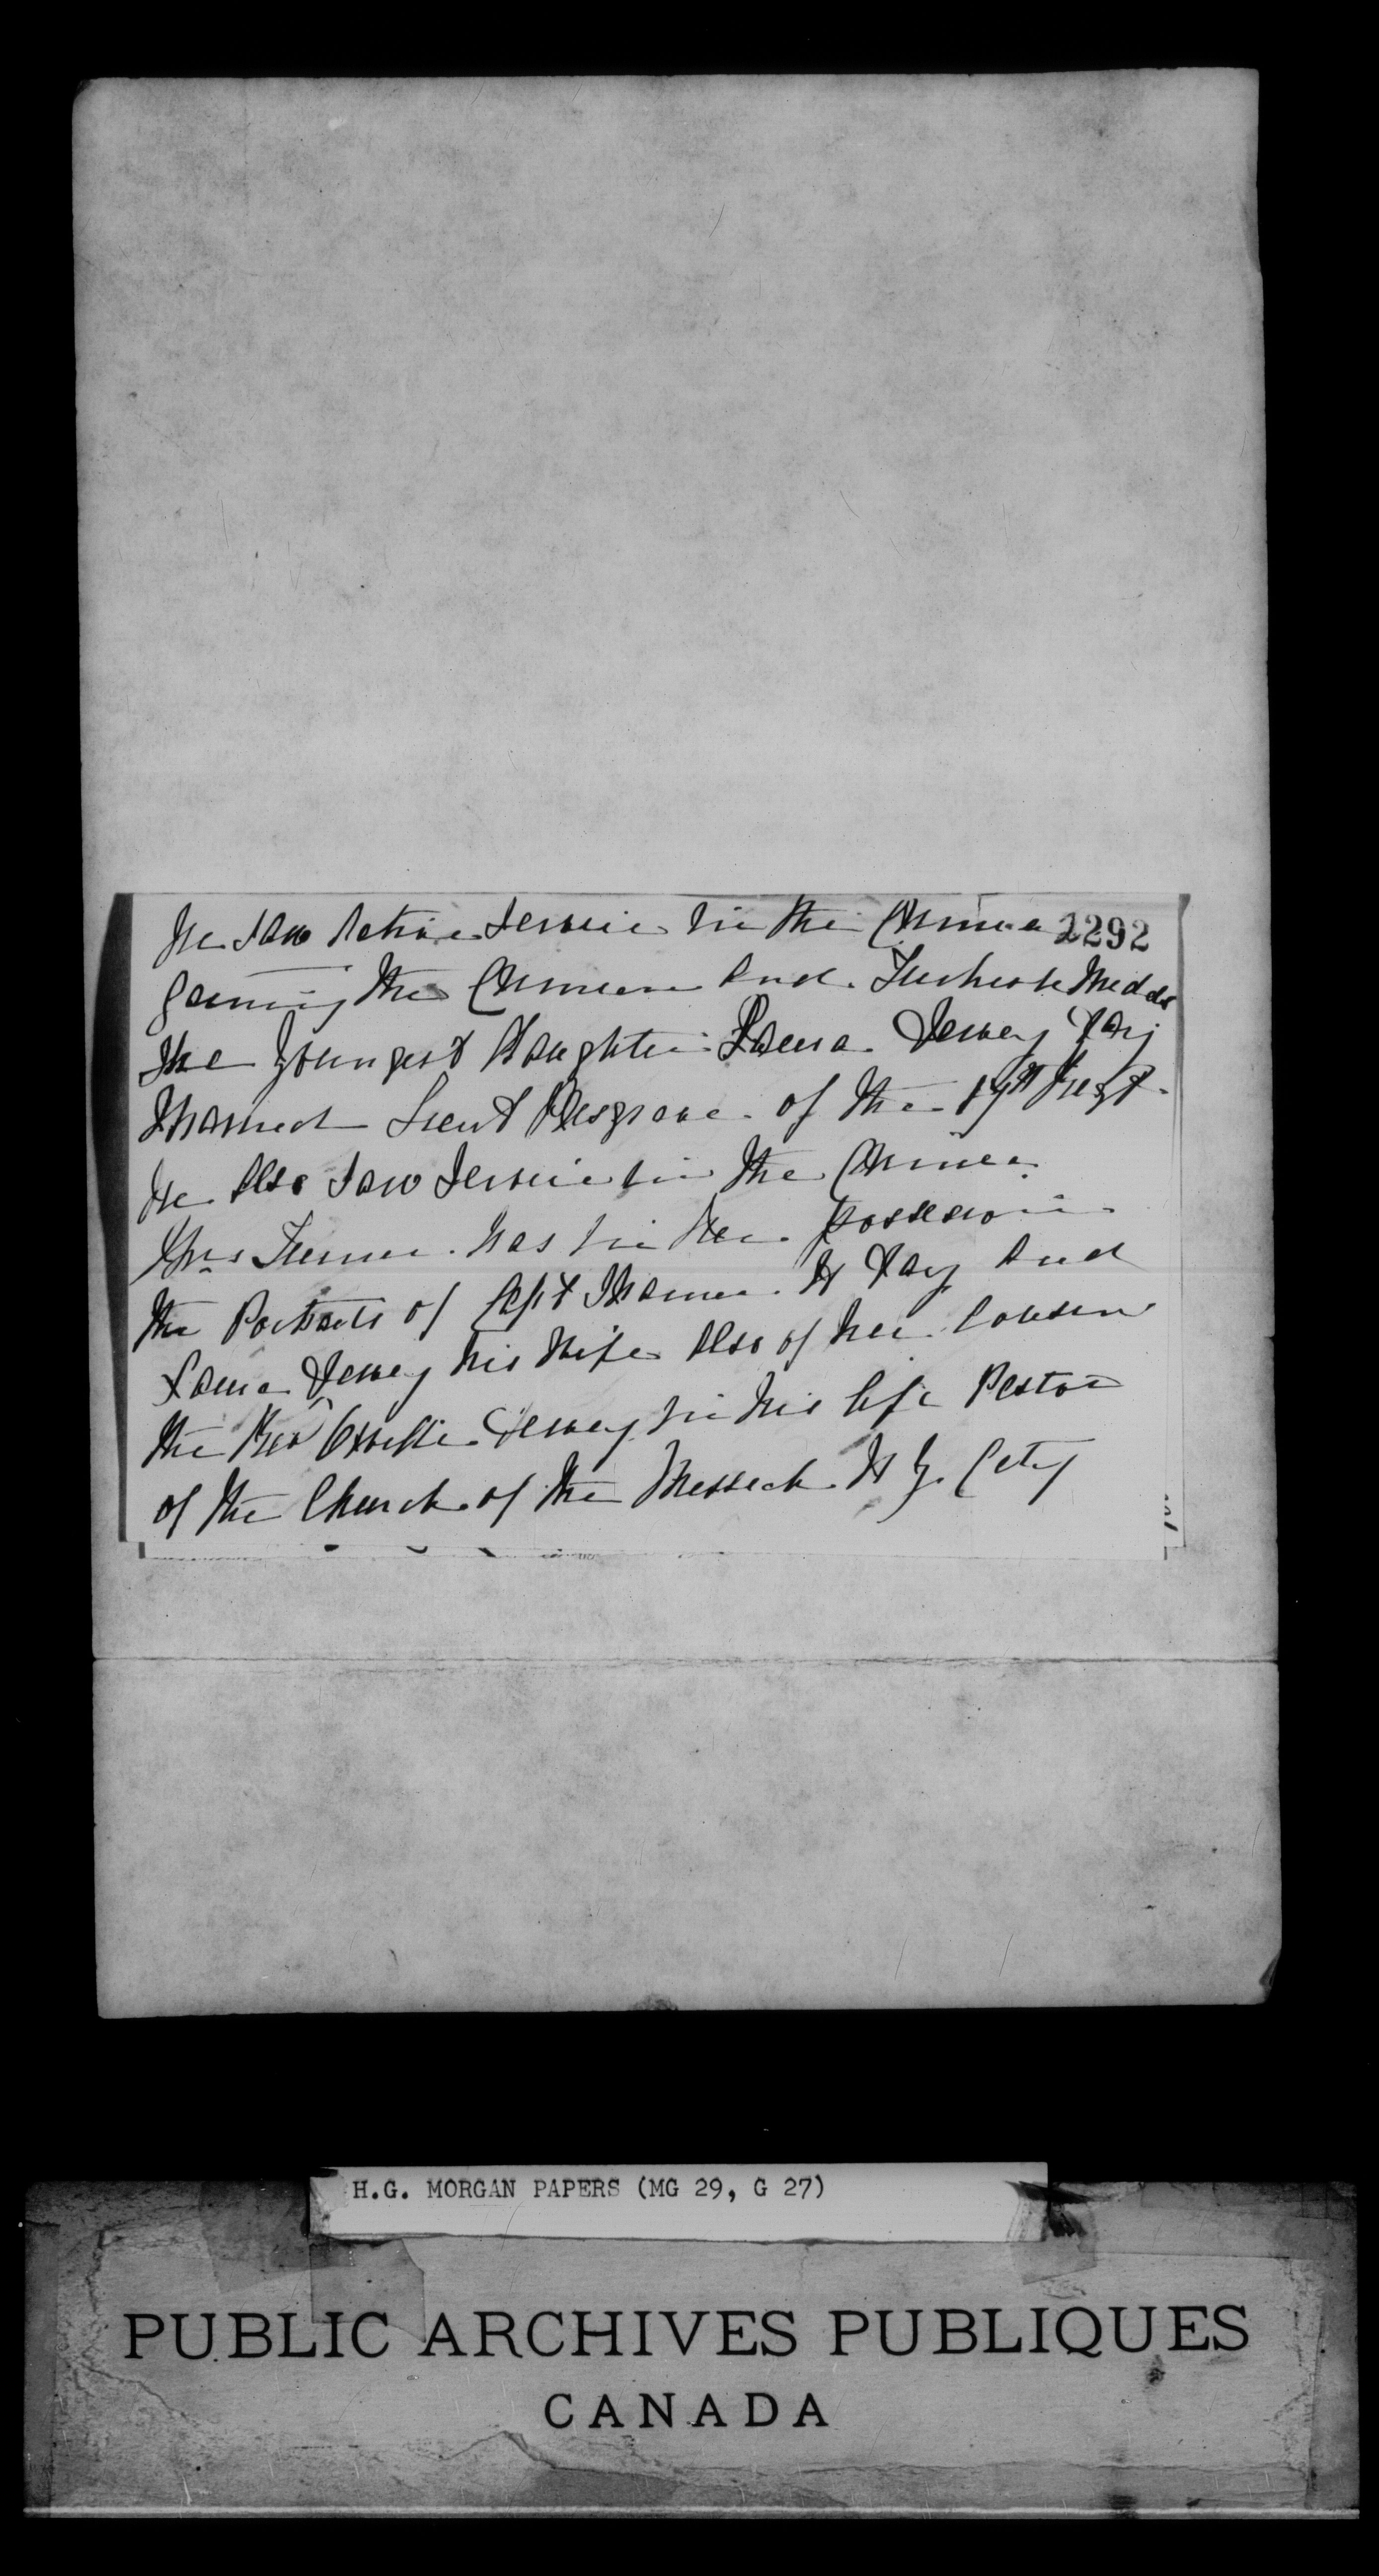 He saw Active Service in the Crimea 2292
gaining the Crimean and Turkish Medals
The Youngest daughter Laura Dewey Day
Married Lieut of the 17th Regt
He Also Saw Service in the Crimea
Mrs Turner has in her possession
the Portraits of Capt Thomas H Day and
Laura Dewey his Wife Also of her Cousin
the Rev Orville Dewey in his life Pastor
of the Church of the Messiah N Y. City
H.G. MORGAN PAPERS (MG 29, G 27)
PUBLIC ARCHIVES PUBLIQUES
CANADA